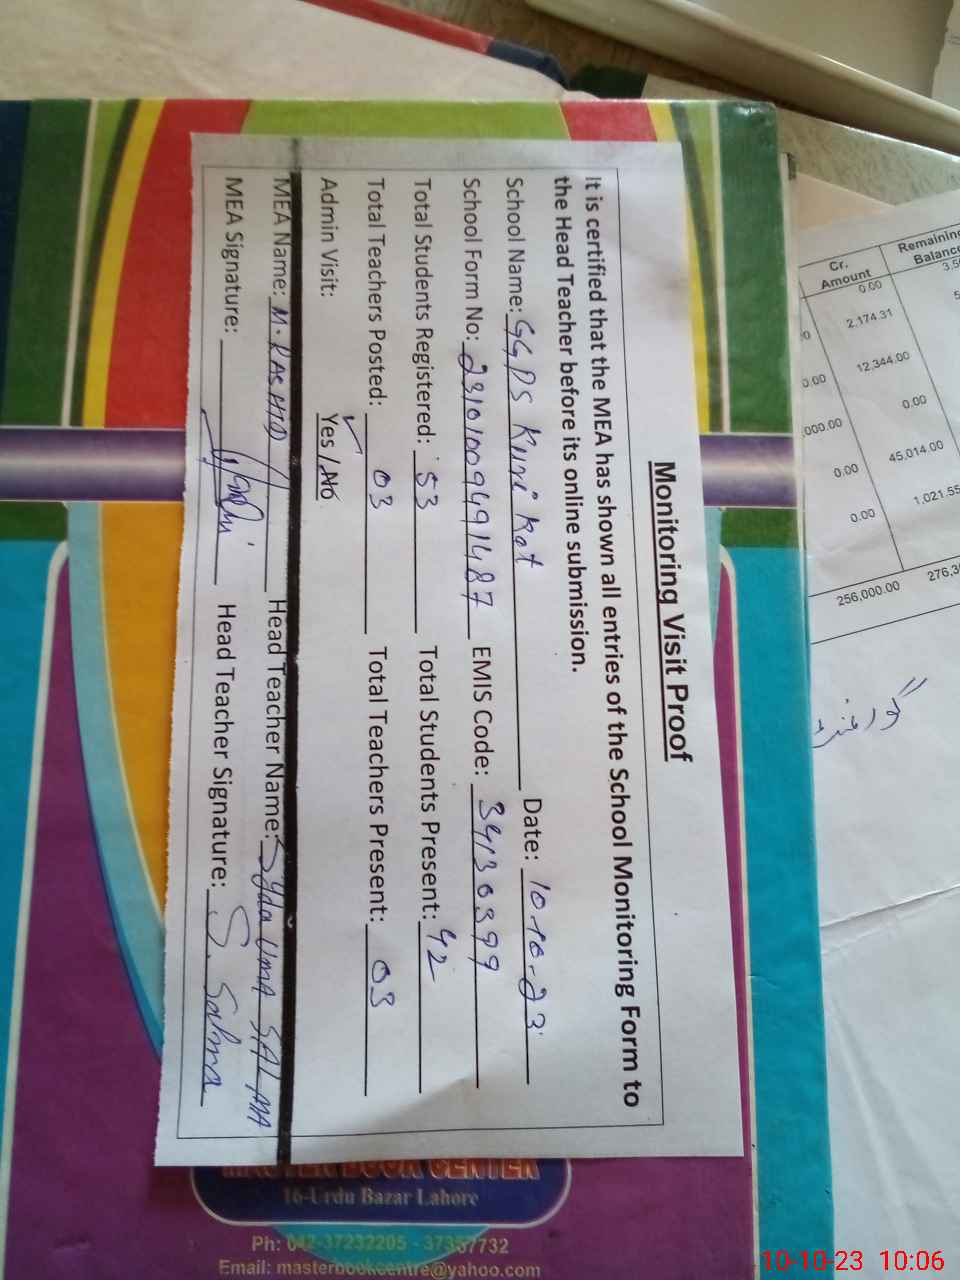 Monitoring Visit Proof
It is certified that the MEA has shown all entries of the School Monitoring Form to
the Head Teacher before its online submission.
School Name: GGPS Kuni Kot Date: 10-10-23
School Form No: 23101009491487 EMIS Code: 34130399
Total Students Registered: 53 Total Students Present: 42
Total Teachers Posted: 03 Total Teachers Present: 03
Admin Visit: Yes / No
MEA Name: M. RASHID Head Teacher Name: Syda Uma SALMA
MEA Signature: Head Teacher Signature: S. Salma
MASTER BOOK CENTER
16-Urdu Bazar Lahore
Ph: 042-37232205 - 37357732
Email: masterbookcentre@yahoo.com
Cr. Remaining
Amount Balance
0.00
2,174.31
12,344.00
0.00 0.00
000.00
0.00 45,014.00
0.00 1,021.55
256,000.00
گورنمنٹ
10-10-23 10:06